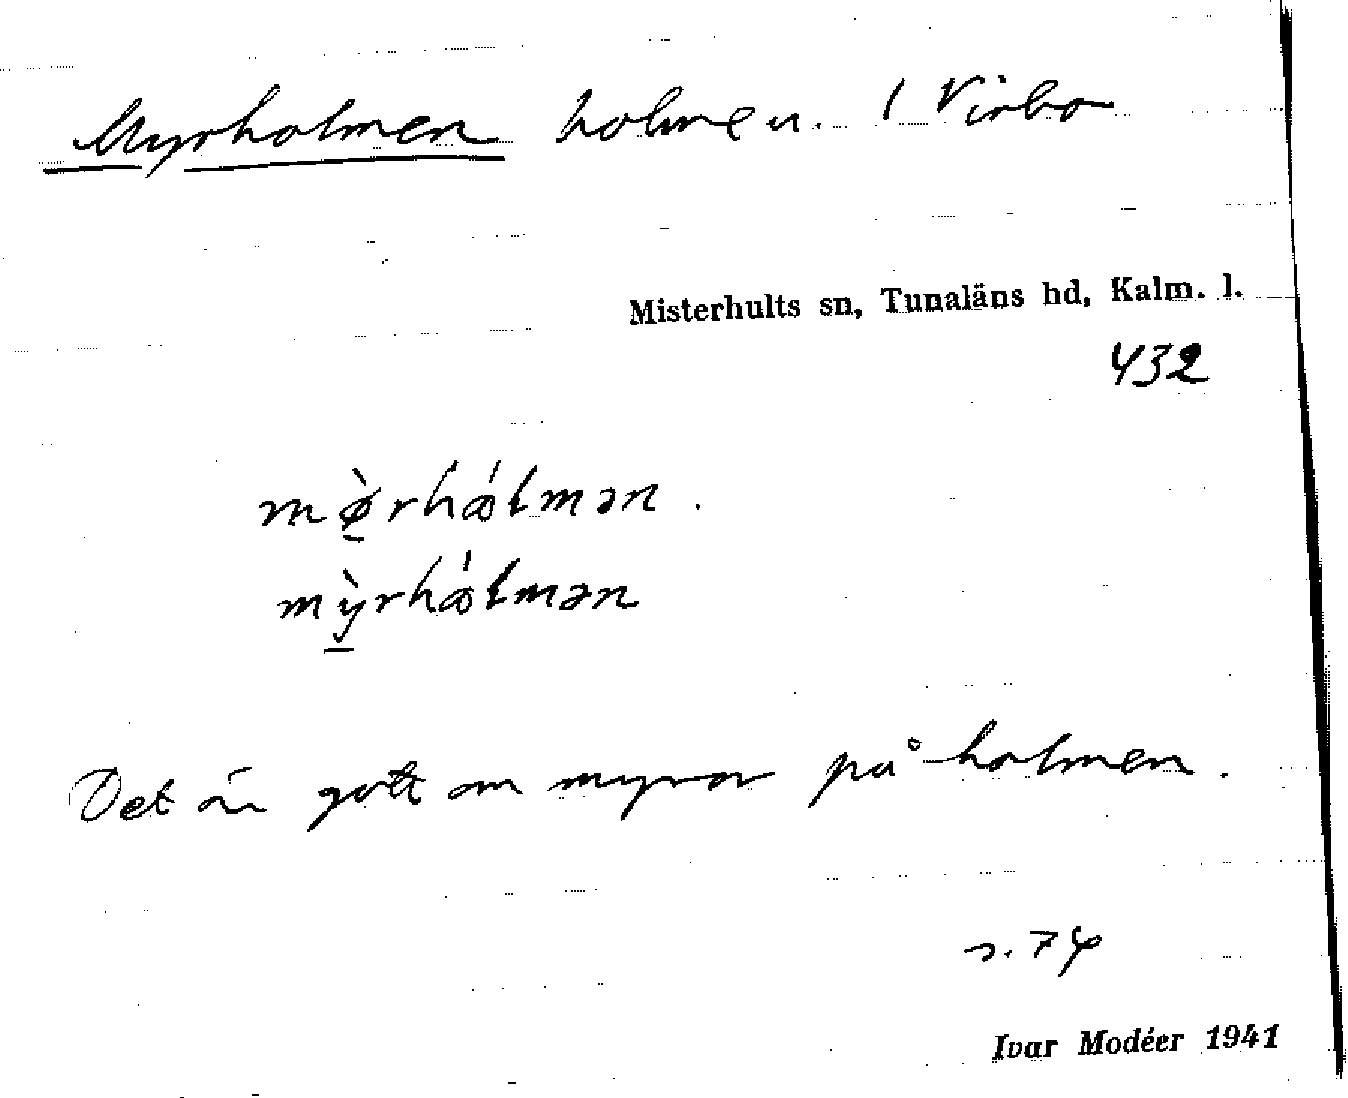 Myrholmen holme u. / Virbo
Misterhults sn, Tunaläns hd, Kalm. l.
432
mø̀rhɷ́lmən.
mỳrhɷ́lmən
Det är gott om myror på holmen.
s. 74
Ivar Modéer 1941